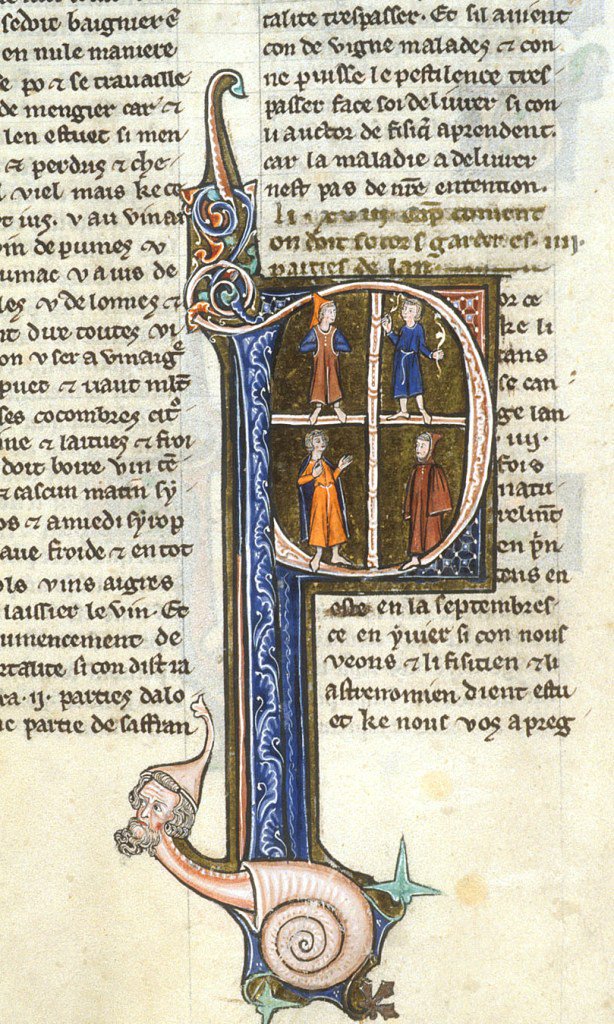 sedoit baignier
en nule maniere
po ⁊ se travaille
de mengier car ⁊
len estuet si men
⁊ perdris ⁊ che
viel mais ke ce
vin de pumes v
les v de lonnies ⁊
dire toutes
on v ser a vinaig
puet ⁊ vaut mlt
ses cocombres
⁊ laitues ⁊ froi
doit boire vin
⁊ cascun matin sy
⁊ amiedi syrop
aue froide ⁊ en tot
vins aigres
laissier le vin. Et
mencement de
si con dist ra
ra .ii. parties dalo
partie de saffran
talite trespasser. Et sil avient
con de vigne malades ⁊ con
ne puisse le pestilence tres
passer face soi deliurer si con
li auctor de fisiq aprendent.
car la maladie a deliurer
nest pas de nre entention.
li. xviii. cap. coment
on doit so cors garder es .iiii.
parties de lan
P or ce
ke li
tans
se can
ge lan
.iiij.
fois
natu
relmt
en pn
tens en
este en la septembres
ce en yiuer si con nous
veons ⁊ li fisitien ⁊ li
astrenomien dient estu
et ke nous vos apreg